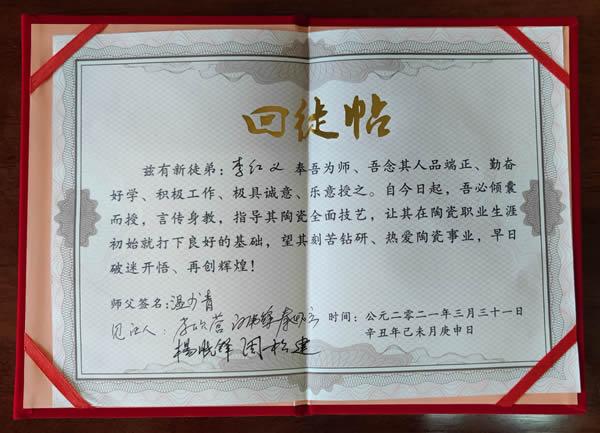 回徒帖
兹有新徒弟：李红义 奉吾为师、吾念其人品端正、勤奋
好学、积极工作、极具诚意、乐意授之。自今日起，吾必倾囊
而授，言传身教，指导其陶瓷全面技艺，让其在陶瓷职业生涯
初始就打下良好的基础，望其刻苦钻研、热爱陶瓷事业，早日
破迷开悟、再创辉煌！
师父签名：温少青
见证人：李欣营
杨晓锋 周松建
时间：公元二零二一年三月三十一日
辛丑年己未月庚申日